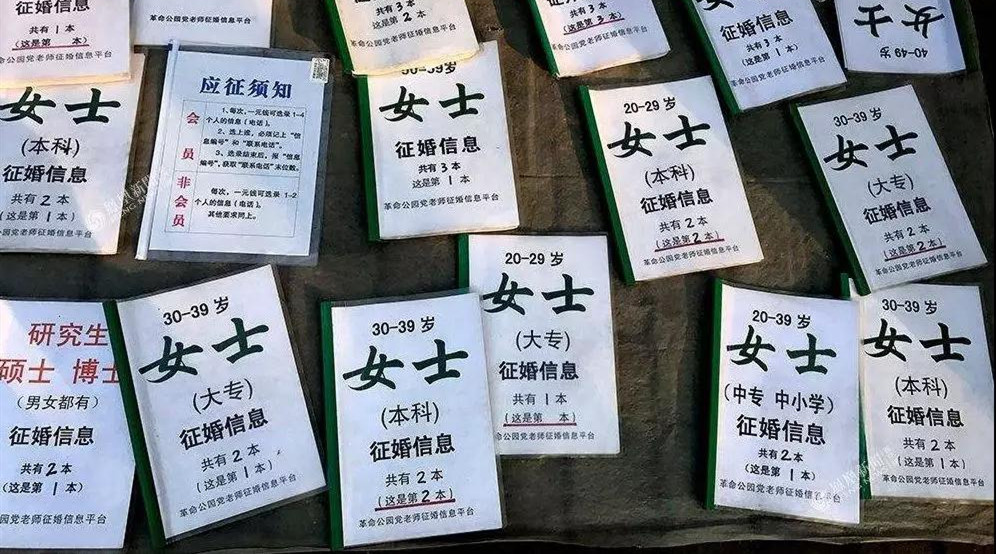 征婚信息
共有 1 本
(这是第 本)
革命公园党老师征婚信息平台
革命公园党老师征婚信息平台
共有 3 本
(这是第 2 本)
革命公园党老师征婚信息平台
征婚信息
共有 3 本
(这是第 3 本)
革命公园党老师征婚信息平台
征婚信息
共有 3 本
(这是第 1 本)
革命公园党老师征婚信息平台
40-49 岁
女士
女士
(本科)
征婚信息
共有 2 本
(这是第 1 本)
革命公园党老师征婚信息平台
应征须知
会员
1、每次,一元钱可选录 1-4
个人的信息(电话)。
2、选上谁,必须记上“信
息编号”和“联系电话”。
3、选录结束后,报“信息
编号”,获取“联系电话”末位数。
非会员
每次,一元钱可选录 1-2
个人的信息(电话)。
其他要求同上。
革命公园党老师征婚信息平台
30-39 岁
女士
征婚信息
共有 3 本
这是第 1 本
革命公园党老师征婚信息平台
20-29 岁
女士
(本科)
征婚信息
共有 2 本
(这是第 2 本)
革命公园党老师征婚信息平台
30-39 岁
女士
(大专)
征婚信息
共有 2 本
(这是第 2 本)
革命公园党老师征婚信息平台
研究生
硕士 博士
(男女都有)
征婚信息
共有 2 本
(这是第 1 本)
革命公园党老师征婚信息平台
30-39 岁
女士
(大专)
征婚信息
共有 2 本
(这是第 1 本)
革命公园党老师征婚信息平台
30-39 岁
女士
(本科)
征婚信息
共有 2 本
(这是第 2 本)
革命公园党老师征婚信息平台
20-29 岁
女士
(大专)
征婚信息
共有 1 本
(这是第 本)
革命公园党老师征婚信息平台
20-39 岁
女士
(中专 中小学)
征婚信息
共有 2 本
(这是第 1 本)
革命公园党老师征婚信息平台
30-39 岁
女士
(本科)
征婚信息
共有 2 本
(这是第 1 本)
革命公园党老师征婚信息平台